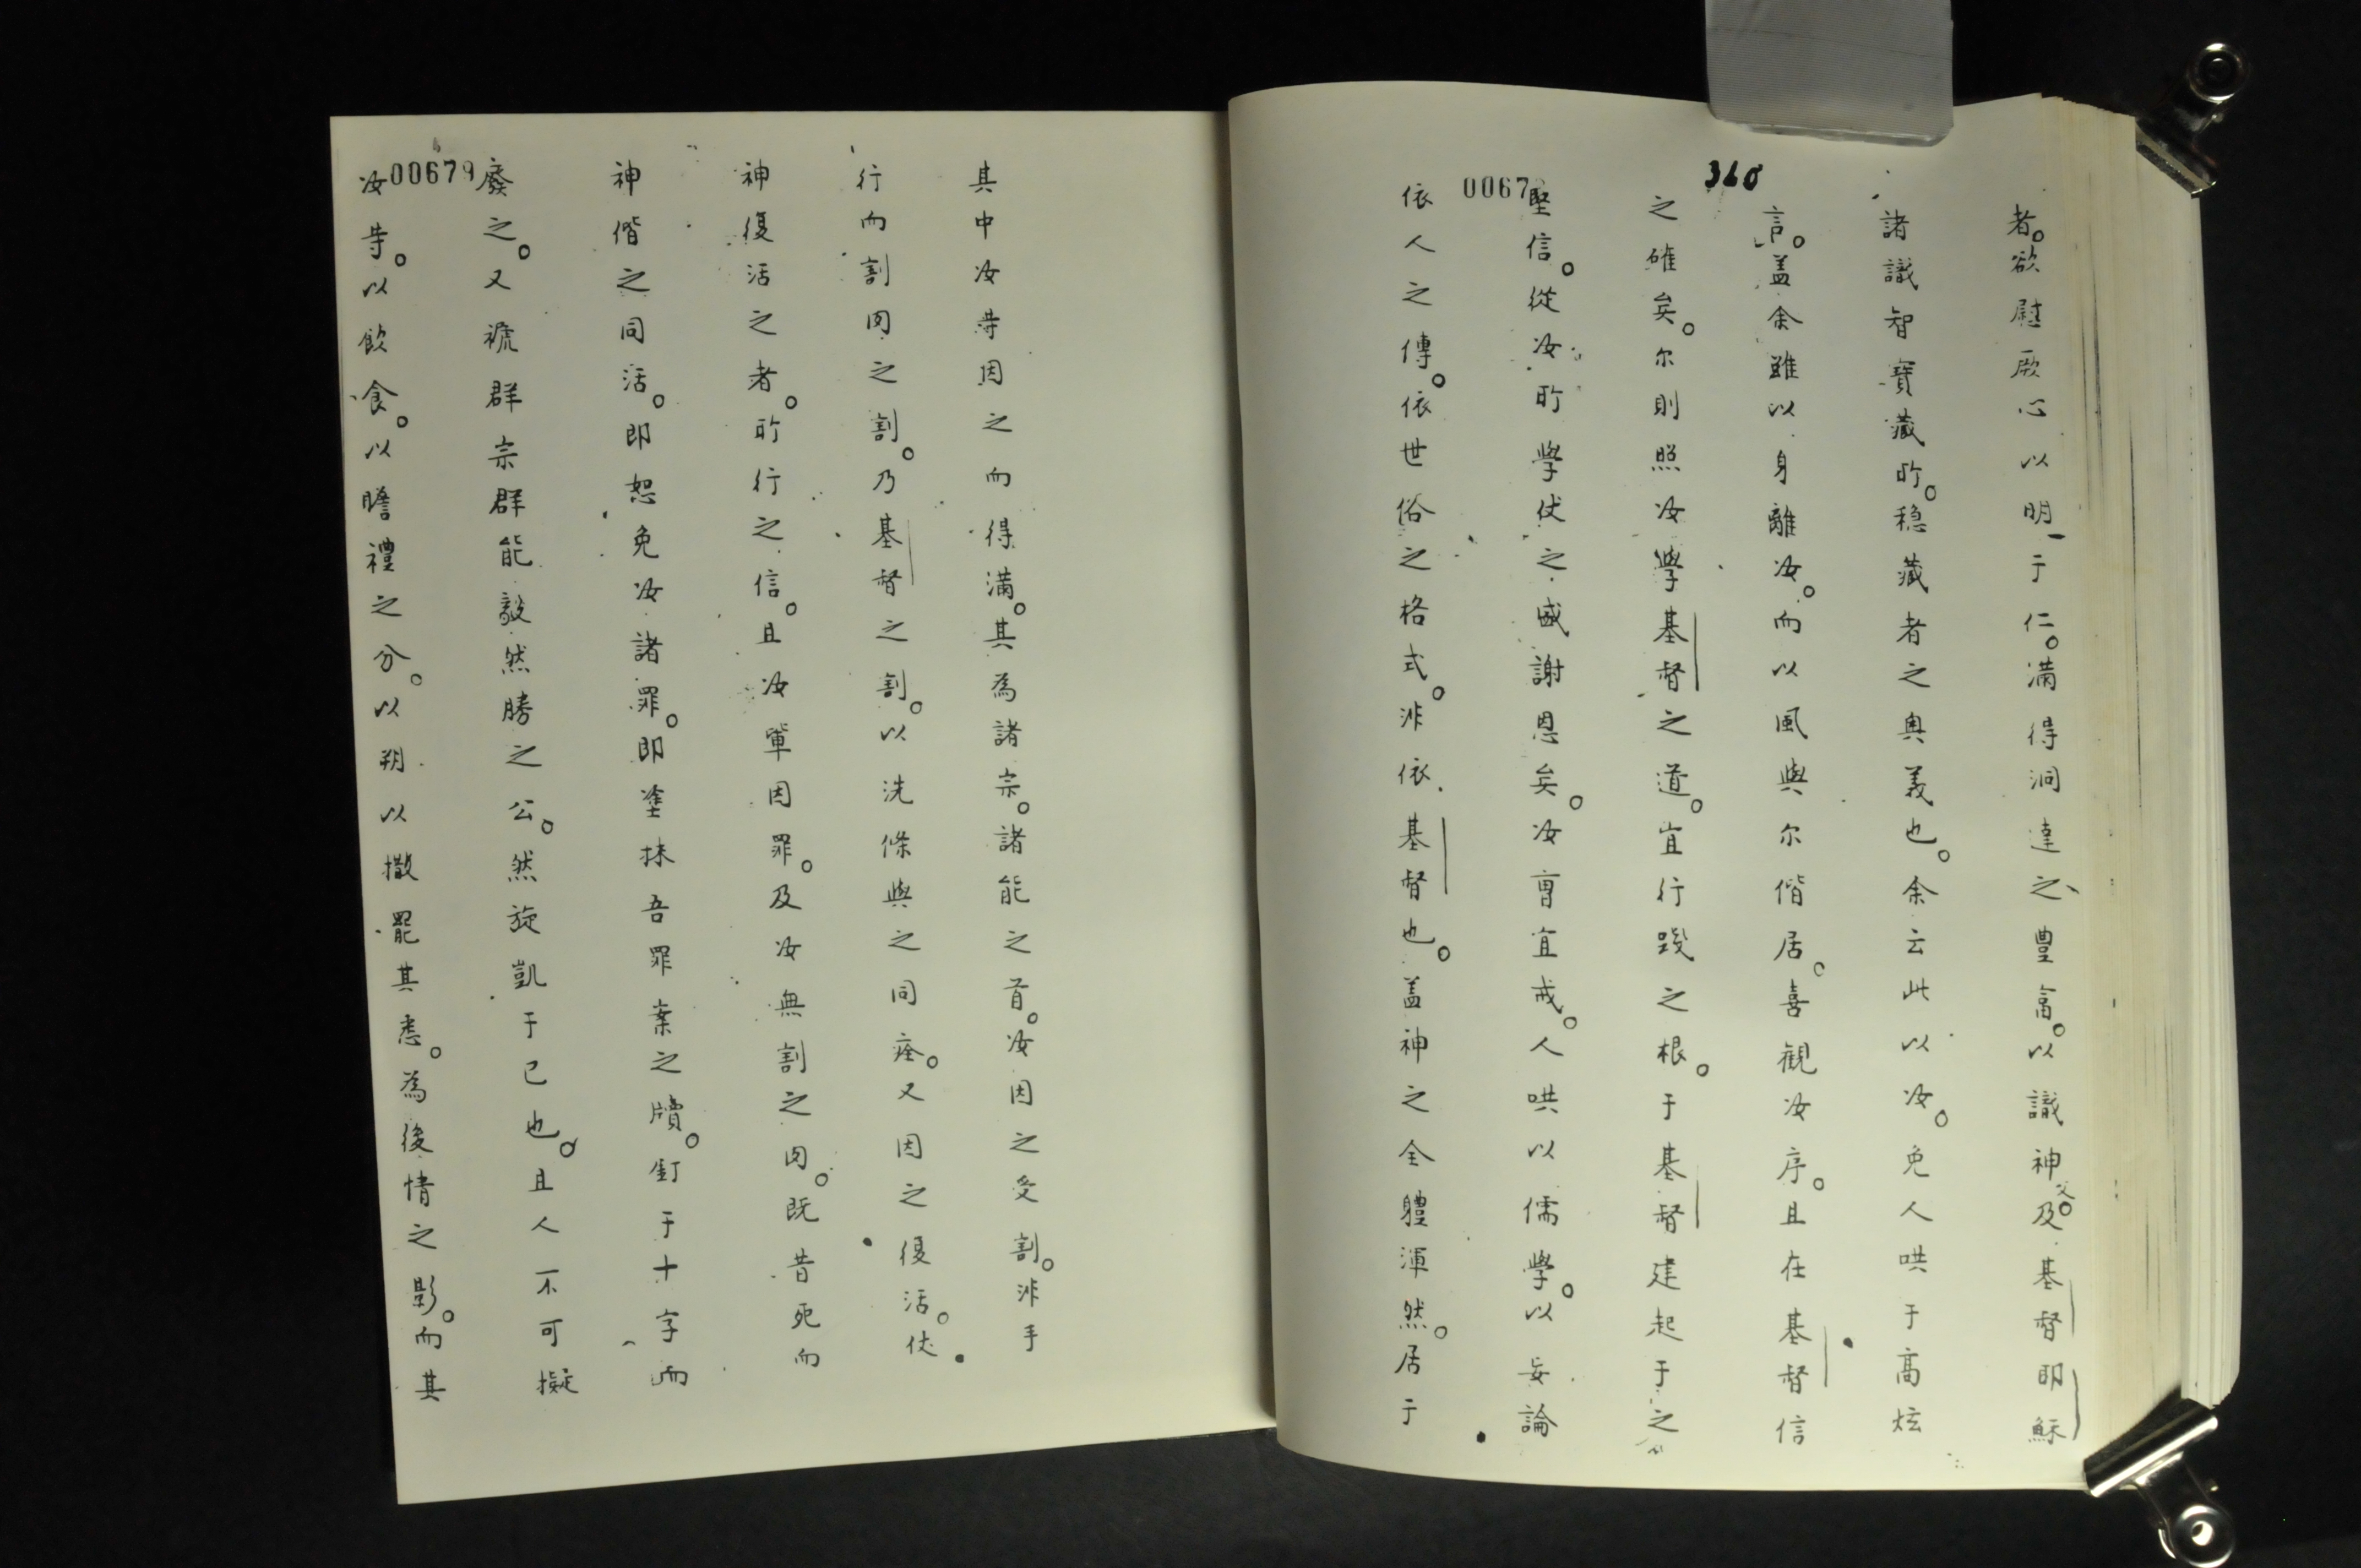 360
0067
者。欲慰厥心以明于仁。滿得洞達之豊富。以識神父。及基督耶穌
諸識智寶藏所。穏藏者之奥義也。余云此以汝。免人哄于高炫
言。盖余雖以身離汝。而以風與尔偕居。喜觀汝序。且在基督信
之確矣。尔則照汝學基督之道。宜行践之根。于基督建起于之
堅信。從汝所學伏之。感謝恩矣。汝曹宜戒。人哄以儒學。以妄論
依人之傳。依世俗之格式。非依基督也。盖神之全體渾然。居于
00679
其中汝等因之而得滿。其為諸宗。諸能之首。汝因之受割。非手
行而割肉之割。乃基督之割。以洗條與之同瘞。又因之復活。伏
神復活之者。所行之信。且汝軰因罪。及汝無割之肉。既昔死而
神偕之同活。即恕免汝諸罪。即塗抹吾罪案之牘。釘于十字而
廢之。又褫群宗群能毅然勝之公。然旋凱于己也。且人不可擬
汝等。以飲食。以瞻禮之分。以朔以撒罷其悉。為後情之影。而其